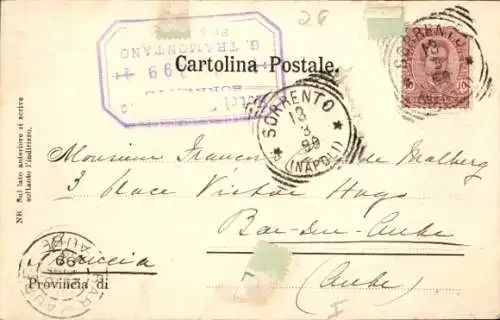 26
G. TRAMONTANO
1899
SORRENTO
Cartolina Postale.
SORRENTO
13
3
99
(NAPOLI)
SORRENTO
13
3
99
10
NB. Sul lato anteriore si scrive
soltanto l'indirizzo.
Monsieur de Malberg
3 place Victor Hugo
Bar-sur-Aube
(Aube)
Provincia di
BAR-S-AUBE
AUBE
99
I